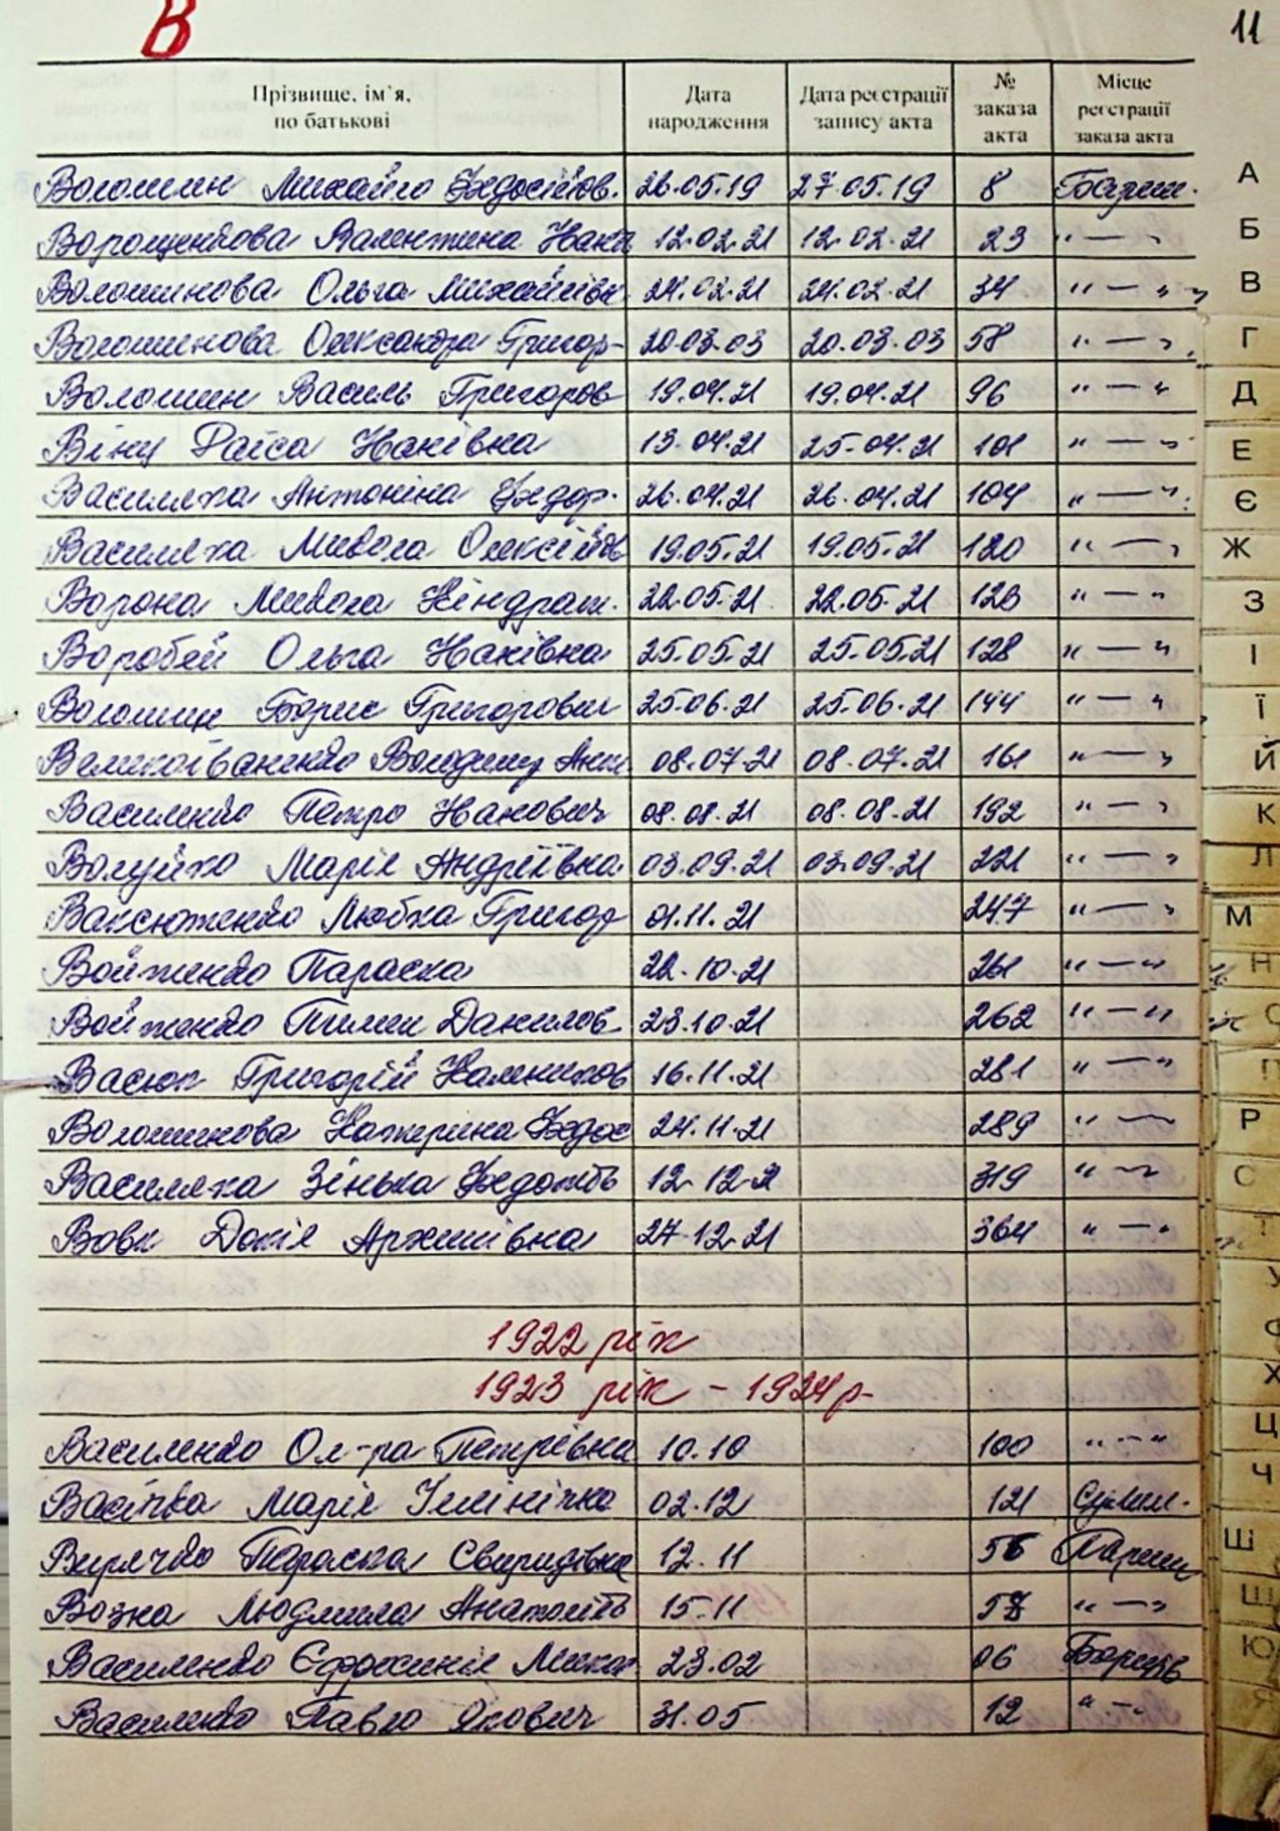 В
11
Прізвище, ім'я, по батькові
Дата народження
Дата реєстрації запису акта
№ заказа акта
Місце реєстрації заказа акта
Волошин Михайло Федосійов. 26.05.19 27.05.19 8
Ворощенкова Валентина Івані 12.02.21 12.02.21 23 " — "
Волошинова Ольга Михайлівн 24.02.21 24.02.21 34 " — "
Волошинова Олександра Григор- 20.03.03 20.03.03 58 " — "
Волошин Василь Григоров 19.04.21 19.04.21 96 " — "
Віку Раїса Іванівна 13.04.21 25.04.21 101 " — "
Василяка Антоніна Федор. 26.04.21 26.04.21 104 " — "
Василяка Микола Олексійов 19.05.21 19.05.21 120 " — "
Ворона Микола Кіндрат. 22.05.21 22.05.21 123 " — "
Воробей Ольга Іванівна 25.05.21 25.05.21 128 " — "
Волошин Борис Григорович 25.06.21 25.06.21 144 " — "
Великоіваненко Володимир 08.07.21 08.07.21 161 " — "
Василенко Петро Іванович 08.08.21 08.08.21 192 " — "
Волуйко Марія Андріївна 03.09.21 03.09.21 221 " — "
Ваксюженко Любка Григор 01.11.21 247 " — "
Войтенко Параска 22.10.21 261 " — "
Войтенко Пимен Данилов 23.10.21 262 " — "
Васюк Григорій 16.11.21 281 " — "
Волошинова Катерина Федос 24.11.21 289 " —
Василяка Зінька 12.12.21 319 " —
Вовк Докія Архипівна 27.12.21 364 " — "
1922 рік
1923 рік - 1924 р
Василенко Ол-ра Петрівна 10.10 100 " - "
Васічка Марія 02.12 121
Вирячко Параска Свиридівна 12.11 56
Возна Людмила Анатоліїв 15.11 57 " — "
Василенко Єфросинія Микол 23.02 06
Василенко Павло Якович 31.05 12 " -
А
Б
В
Г
Д
Е
Є
Ж
З
І
Ї
Й
К
Л
М
Н
О
П
Р
С
Т
У
Ф
Х
Ц
Ч
Ш
Щ
Ю
Я